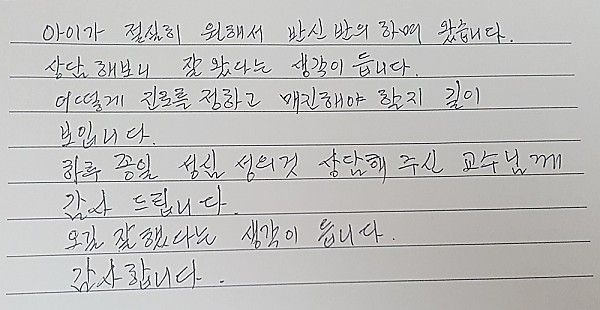 아이가 절실히 원해서 반신 반의 하며 왔습니다.
상담 해보니 잘 왔다는 생각이 듭니다.
어떻게 진로를 정하고 매진해야 할지 길이
보입니다.
하루 종일 성심 성의것 상담해 주신 교수님께
감사 드립니다.
오길 잘했다는 생각이 듭니다.
감사합니다.